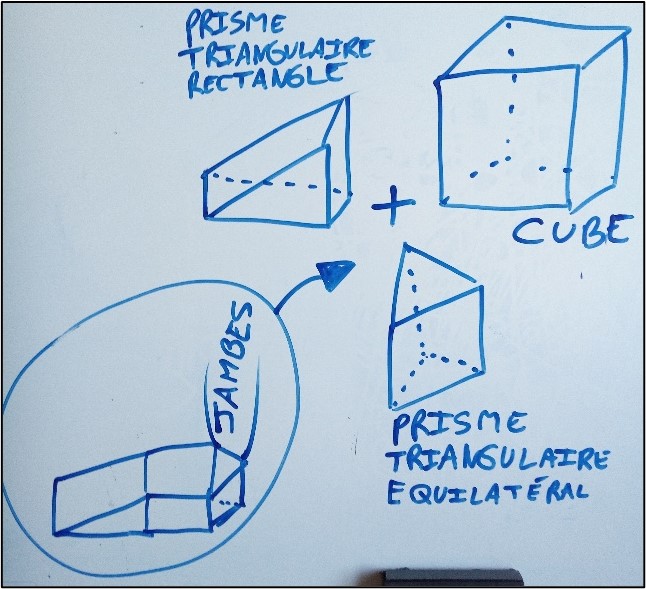 PRISME
TRIANGULAIRE
RECTANGLE
+
CUBE
JAMBES
PRISME
TRIANGULAIRE
EQUILATÉRAL